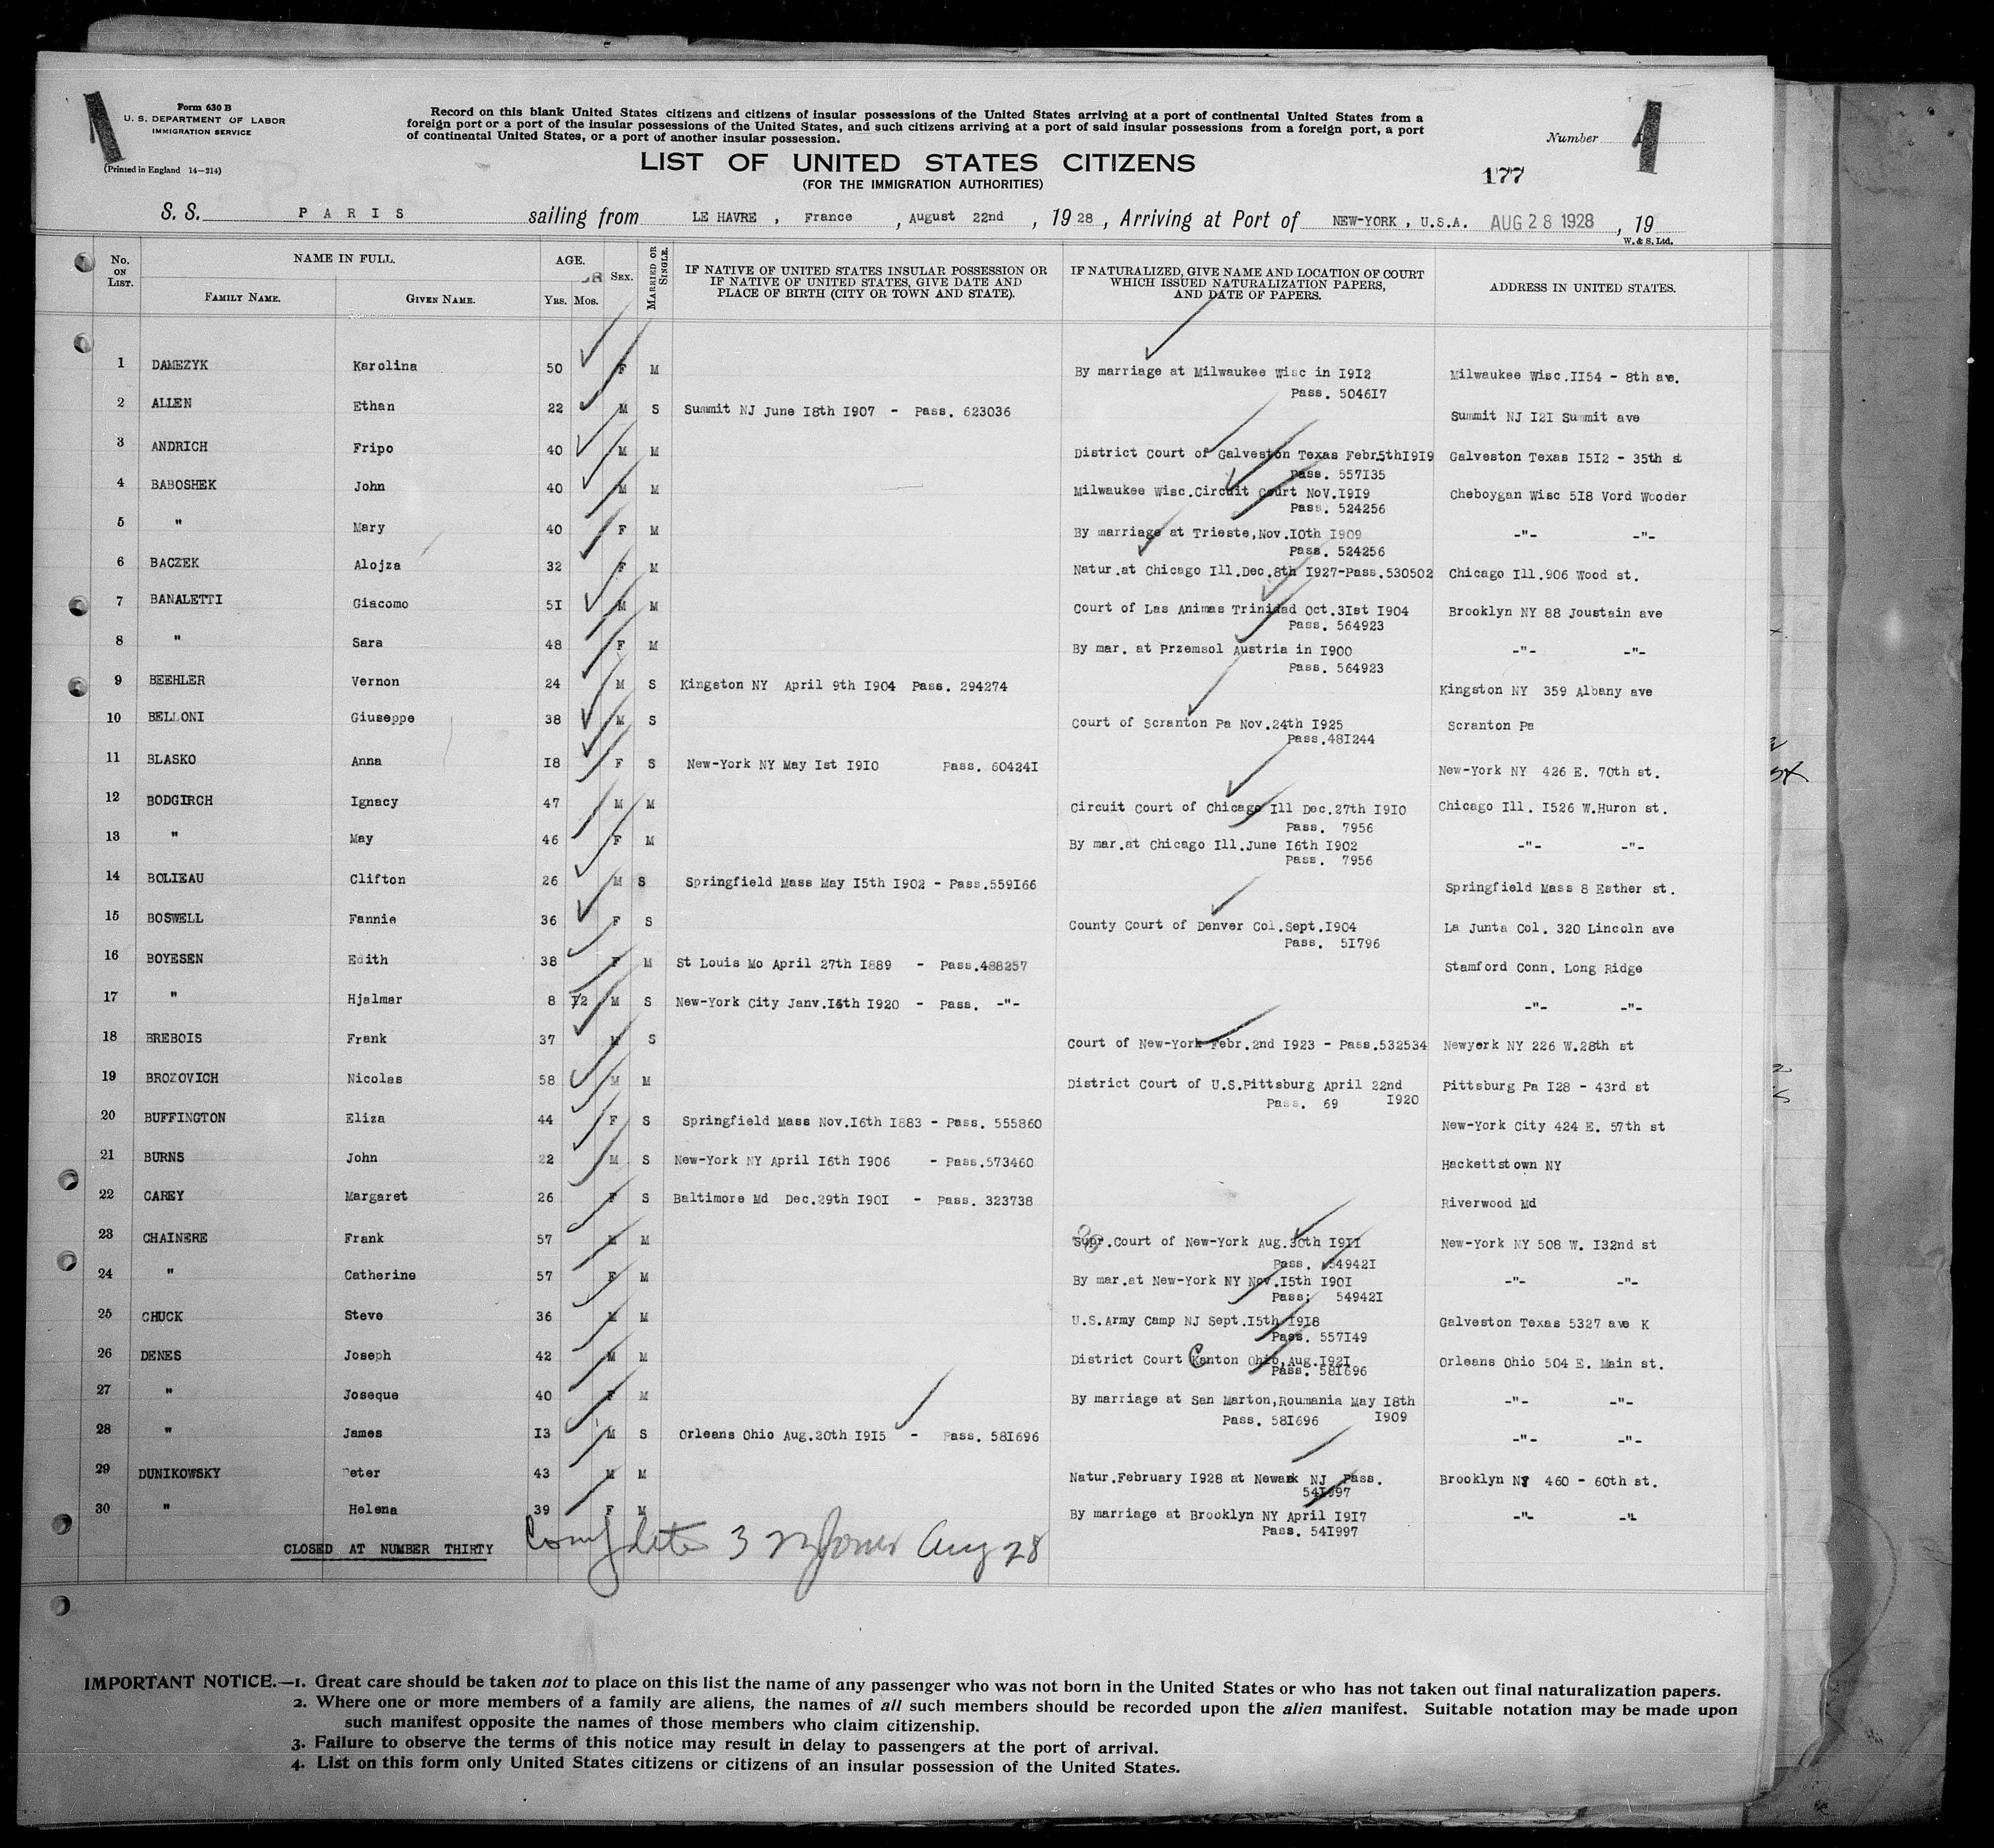 Form 630 B
U. S. DEPARTMENT OF LABOR
IMMIGRATION SERVICE
(Printed in England 14-214)
Record on this blank United States citizens and citizens of insular possessions of the United States arriving at a port of continental United States from a
foreign port or a port of the insular possessions of the United States, and such citizens arriving at a port of said insular possessions from a foreign port, a port
of continental United States, or a port of another insular possession.
Number 1
LIST OF UNITED STATES CITIZENS
(FOR THE IMMIGRATION AUTHORITIES)
177
S. S. PARIS sailing from LE HAVRE , France , August 22nd , 1928 , Arriving at Port of NEW-YORK , U.S.A. AUG 28 1928 , 19
W. & S. Ltd.
No. ON LIST. NAME IN FULL. FAMILY NAME. GIVEN NAME. AGE. Yrs. Mos. SEX. MARRIED OR SINGLE. IF NATIVE OF UNITED STATES INSULAR POSSESSION OR IF NATIVE OF UNITED STATES, GIVE DATE AND PLACE OF BIRTH (CITY OR TOWN AND STATE). IF NATURALIZED, GIVE NAME AND LOCATION OF COURT WHICH ISSUED NATURALIZATION PAPERS, AND DATE OF PAPERS. ADDRESS IN UNITED STATES.
1 DAMEZYK Karolina 50 F M By marriage at Milwaukee Wisc in I9I2 Milwaukee Wisc.II54 - 8th ave.
Pass. 5046I7
2 ALLEN Ethan 22 M S Summit NJ June I8th I907 - Pass. 623036 Summit NJ I2I Summit ave
3 ANDRICH Fripo 40 M M District Court of Galveston Texas Febr.5thI9I9 Galveston Texas I5I2 - 35th st
Pass. 557I35
4 BABOSHEK John 40 M M Milwaukee Wisc.Circuit Court Nov.I9I9 Cheboygan Wisc 5I8 Vord Wooder
Pass. 524256
5 " Mary 40 F M By marriage at Trieste,Nov.I0th I909 -"- -"-
Pass. 524256
6 BACZEK Alojza 32 F M Natur.at Chicago Ill.Dec.8th I927-Pass.530502 Chicago Ill.906 Wood st.
7 BANALETTI Giacomo 5I M M Court of Las Animas Trinidad Oct.3Ist I904 Brooklyn NY 88 Joustain ave
Pass. 564923
8 " Sara 48 F M By mar. at Przemsol Austria in I900 -"- -"-
Pass. 564923
9 BEEHLER Vernon 24 M S Kingston NY April 9th I904 Pass. 294274 Kingston NY 359 Albany ave
10 BELLONI Giuseppe 38 M S Court of Scranton Pa Nov.24th I925 Scranton Pa
Pass.48I244
11 BLASKO Anna I8 F S New-York NY May Ist I9I0 Pass. 60424I New-York NY 426 E. 70th st.
12 BODGIRCH Ignacy 47 M M Circuit Court of Chicago Ill Dec.27th I9I0 Chicago Ill. I526 W.Huron st.
Pass. 7956
13 " May 46 F M By mar.at Chicago Ill.June I6th I902 -"- -"-
Pass. 7956
14 BOLIEAU Clifton 26 M S Springfield Mass May I5th I902 - Pass.559I66 Springfield Mass 8 Esther st.
15 BOSWELL Fannie 36 F S County Court of Denver Col.Sept.I904 La Junta Col. 320 Lincoln ave
Pass. 5I796
16 BOYESEN Edith 38 F M St Louis Mo April 27th I889 - Pass.488257 Stamford Conn. Long Ridge
17 " Hjalmar 8 M S New-York City Janv. I920 - Pass. -"- -"- -"-
18 BREBOIS Frank 37 M S Court of New-York Febr.2nd I923 - Pass.532534 Newyork NY 226 W.28th st
19 BROZOVICH Nicolas 58 M M District Court of U.S.Pittsburg April 22nd Pittsburg Pa I28 - 43rd st
Pass. 69 I920
20 BUFFINGTON Eliza 44 F S Springfield Mass Nov.I6th I883 - Pass. 555860 New-York City 424 E. 57th st
21 BURNS John 22 M S New-York NY April I6th I906 - Pass.573460 Hackettstown NY
22 CAREY Margaret 26 F S Baltimore Md Dec.29th I90I - Pass. 323738 Riverwood Md
23 CHAINERE Frank 57 M M Supr.Court of New-York Aug.30th I9II New-York NY 508 W. I32nd st
Pass. 54942I
24 " Catherine 57 F M By mar.at New-York NY Nov.I5th I90I -"- -"-
Pass; 54942I
25 CHUCK Steve 36 M M U.S.Army Camp NJ Sept.I5th I9I8 Galveston Texas 5327 ave K
Pass. 557I49
26 DENES Joseph 42 M M District Court Canton Ohio,Aug.I92I Orleans Ohio 504 E. Main st.
Pass. 58I696
27 " Joseque 40 F M By marriage at San Marton,Roumania May I8th -"- -"-
Pass. 58I696 I909
28 " James I3 M S Orleans Ohio Aug.20th I9I5 - Pass. 58I696 -"- -"-
29 DUNIKOWSKY Peter 43 M M Natur.February I928 at Newark NJ Pass. Brooklyn NY 460 - 60th st.
54I997
30 " Helena 39 F M By marriage at Brooklyn NY April I9I7 -"- -"-
Pass. 54I997
CLOSED AT NUMBER THIRTY
Complete 3 Aug 28
IMPORTANT NOTICE.—1. Great care should be taken not to place on this list the name of any passenger who was not born in the United States or who has not taken out final naturalization papers.
2. Where one or more members of a family are aliens, the names of all such members should be recorded upon the alien manifest. Suitable notation may be made upon
such manifest opposite the names of those members who claim citizenship.
3. Failure to observe the terms of this notice may result in delay to passengers at the port of arrival.
4. List on this form only United States citizens or citizens of an insular possession of the United States.